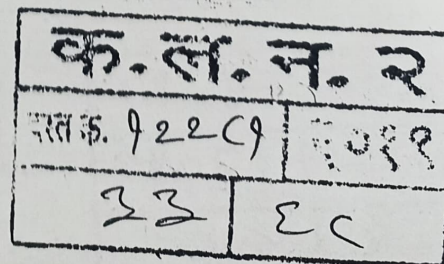 क.ल.न. २
दस्त क्र. १२२८१ २०११
३३ ६८